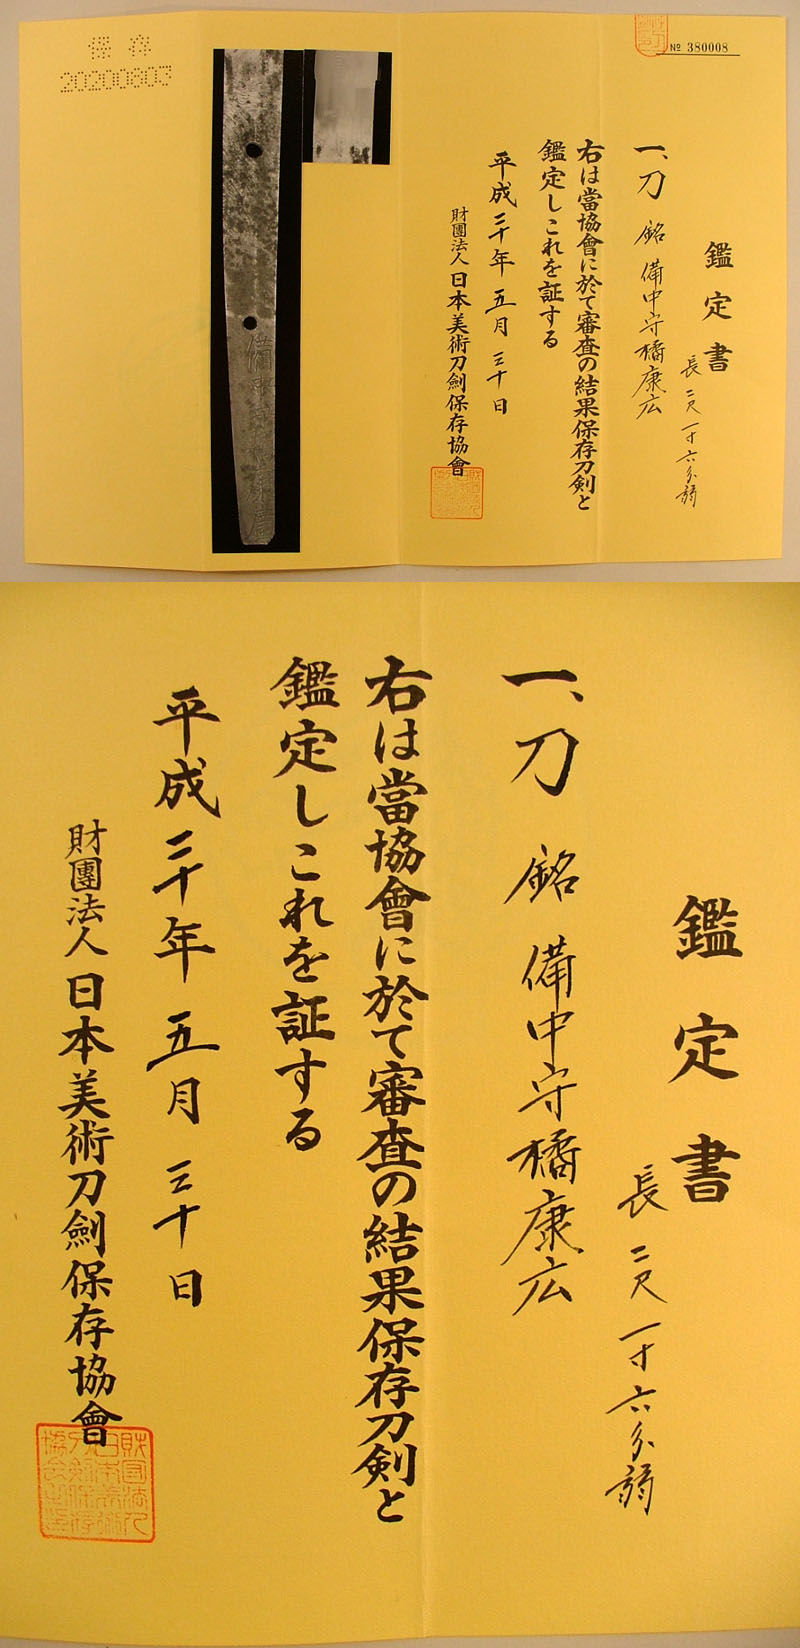 保存
20200803
№ 380008
鑑定書
一、刀 銘 備中守橘康広
長 二尺一寸六分弱
右は當協會に於て審査の結果保存刀剣と
鑑定しこれを証する
平成二十年 五月 三十日
財團法人 日本美術刀劍保存協會
鑑定書
一、刀 銘 備中守橘康広
長 二尺一寸六分弱
右は當協會に於て審査の結果保存刀剣と
鑑定しこれを証する
平成二十年 五月 三十日
財團法人 日本美術刀劍保存協會